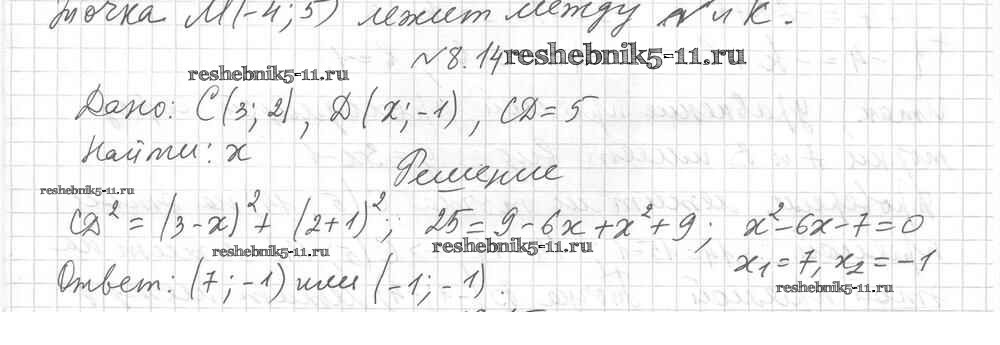 точка M(-4; 5) лежит между N и K.
№8.14
reshebnik5-11.ru
reshebnik5-11.ru
Дано: C(3; 2), D(x; -1), CD = 5
Найти: x
Решение
reshebnik5-11.ru
CD² = (3-x)² + (2+1)²; 25 = 9 - 6x + x² + 9; x² - 6x - 7 = 0
reshebnik5-11.ru
reshebnik5-11.ru
x₁ = 7, x₂ = -1
Ответ: (7; -1) или (-1; -1).
reshebnik5-11.ru